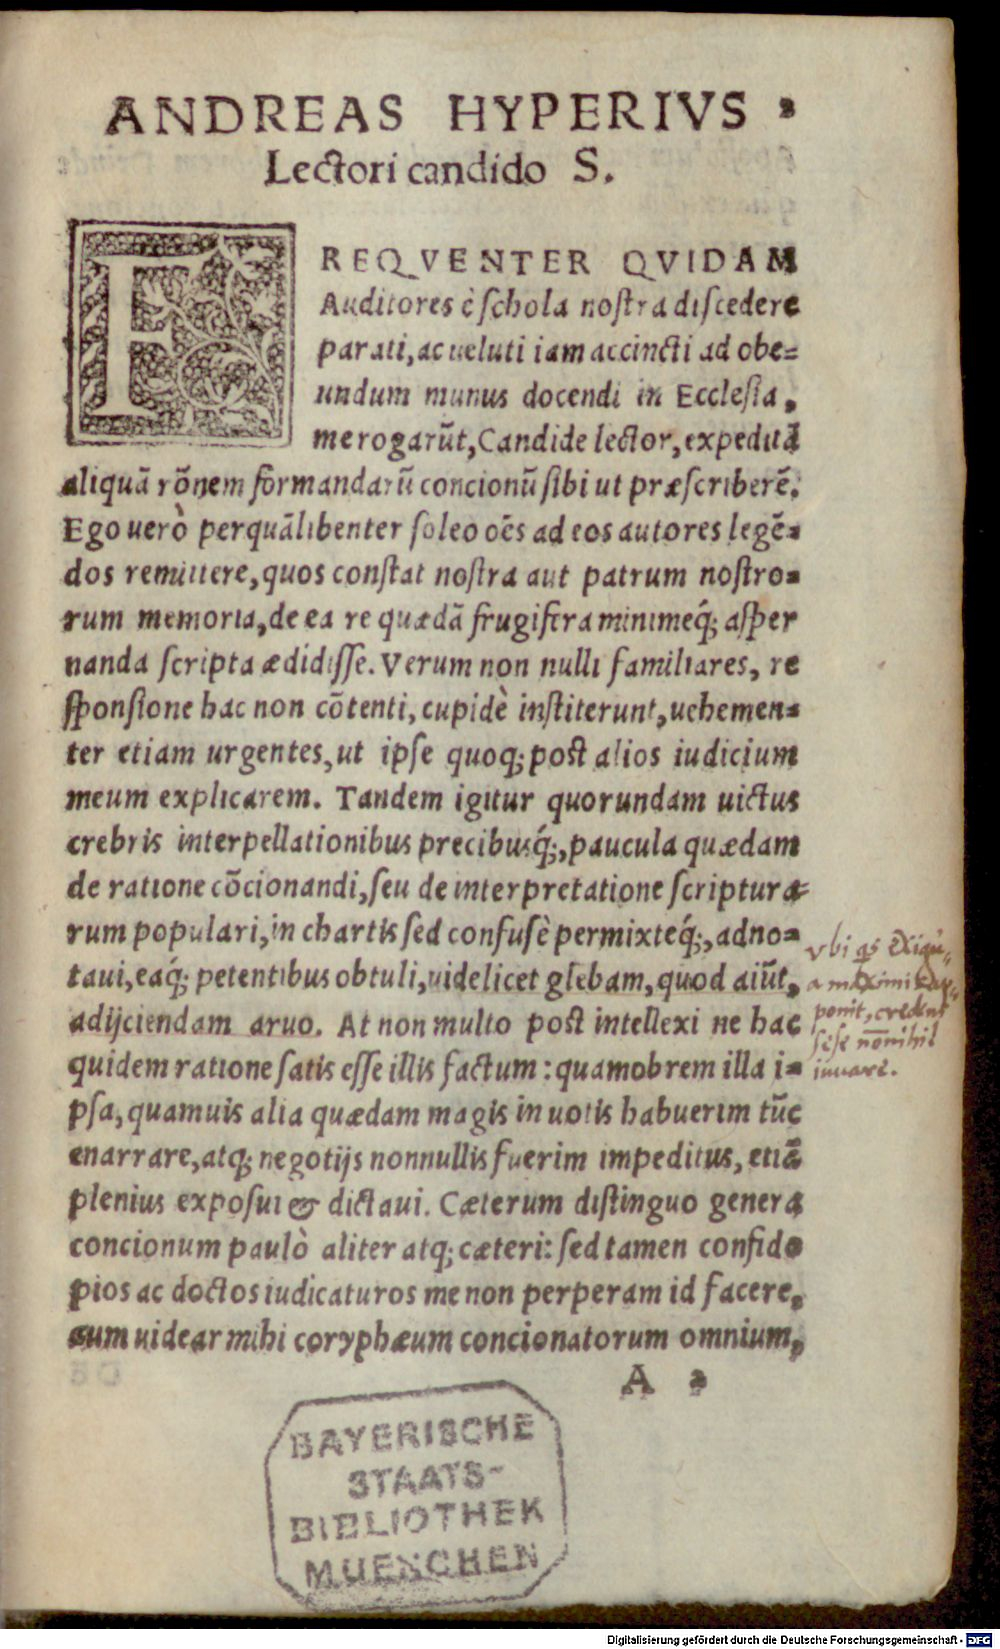 ANDREAS HYPERIVS
Lectori candido S.
FREQVENTER QVIDAM
Auditores è schola nostra discedere
parati, ac ueluti iam accincti ad obe=
undum munus docendi in Ecclesia,
me rogarũt, Candide lector, expeditã
aliquã rõnem formandarũ concionũ sibi ut præscriberẽ.
Ego uerò perquãlibenter soleo oẽs ad eos autores legẽ=
dos remittere, quos constat nostra aut patrum nostro=
rum memoria, de ea re quædã frugifera minimeq́; asper
nanda scripta ædidisse. Verum non nulli familiares, re
sponsione hac non cõtenti, cupidè institerunt, uehemen=
ter etiam urgentes, ut ipse quoq; post alios iudicium
meum explicarem. Tandem igitur quorundam uictus
crebris interpellationibus precibusq́;, paucula quædam
de ratione cõcionandi, seu de interpretatione scriptura=
rum populari, in chartis sed confusè permixteq́;, adno=
taui, eaq́; petentibus obtuli, uidelicet glebam, quod aiũt,
adijciendam aruo. At non multo post intellexi ne hac
quidem ratione satis esse illis factum: quamobrem illa i=
psa, quamuis alia quædam magis in uotis habuerim tũc
enarrare, atq; negotijs nonnullis fuerim impeditus, etiã
plenius exposui & dictaui. Cæterum distinguo genera
concionum paulò aliter atq; cæteri: sed tamen confido
pios ac doctos iudicaturos me non perperam id facere,
cum uidear mihi coryphæum concionatorum omnium,
A 2
vbi qs exigu=
a maximi
ponit, credens
sese nõnihil
iuuare.
BAYERISCHE
STAATS-
BIBLIOTHEK
MUENCHEN
Digitalisierung gefördert durch die Deutsche Forschungsgemeinschaft - DFG